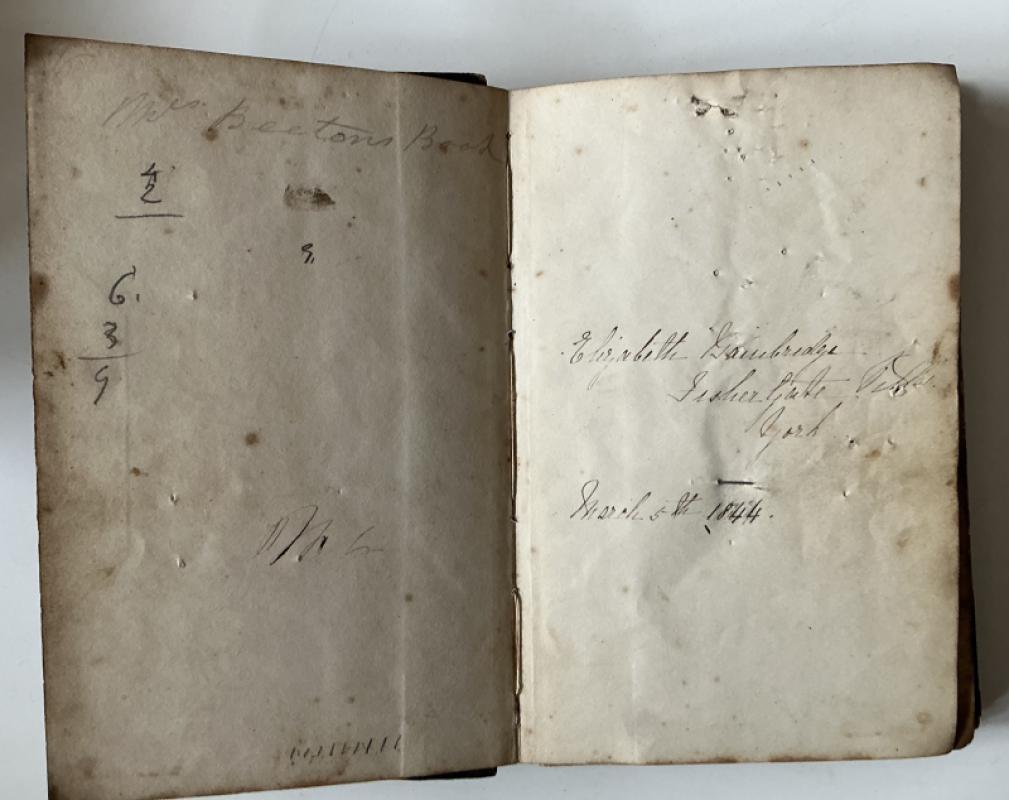 Mrs Beetons Book
4
2
9,
6.
3
9
Elizabeth Bainbridge
Fisher Gate Villa
York
March 5th 1844.